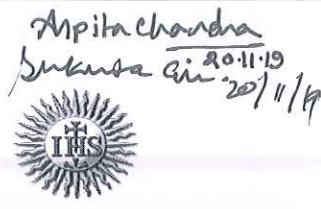 Arpita Chandra
20.11.19
Sukuta Giri 20/11/19
IHS